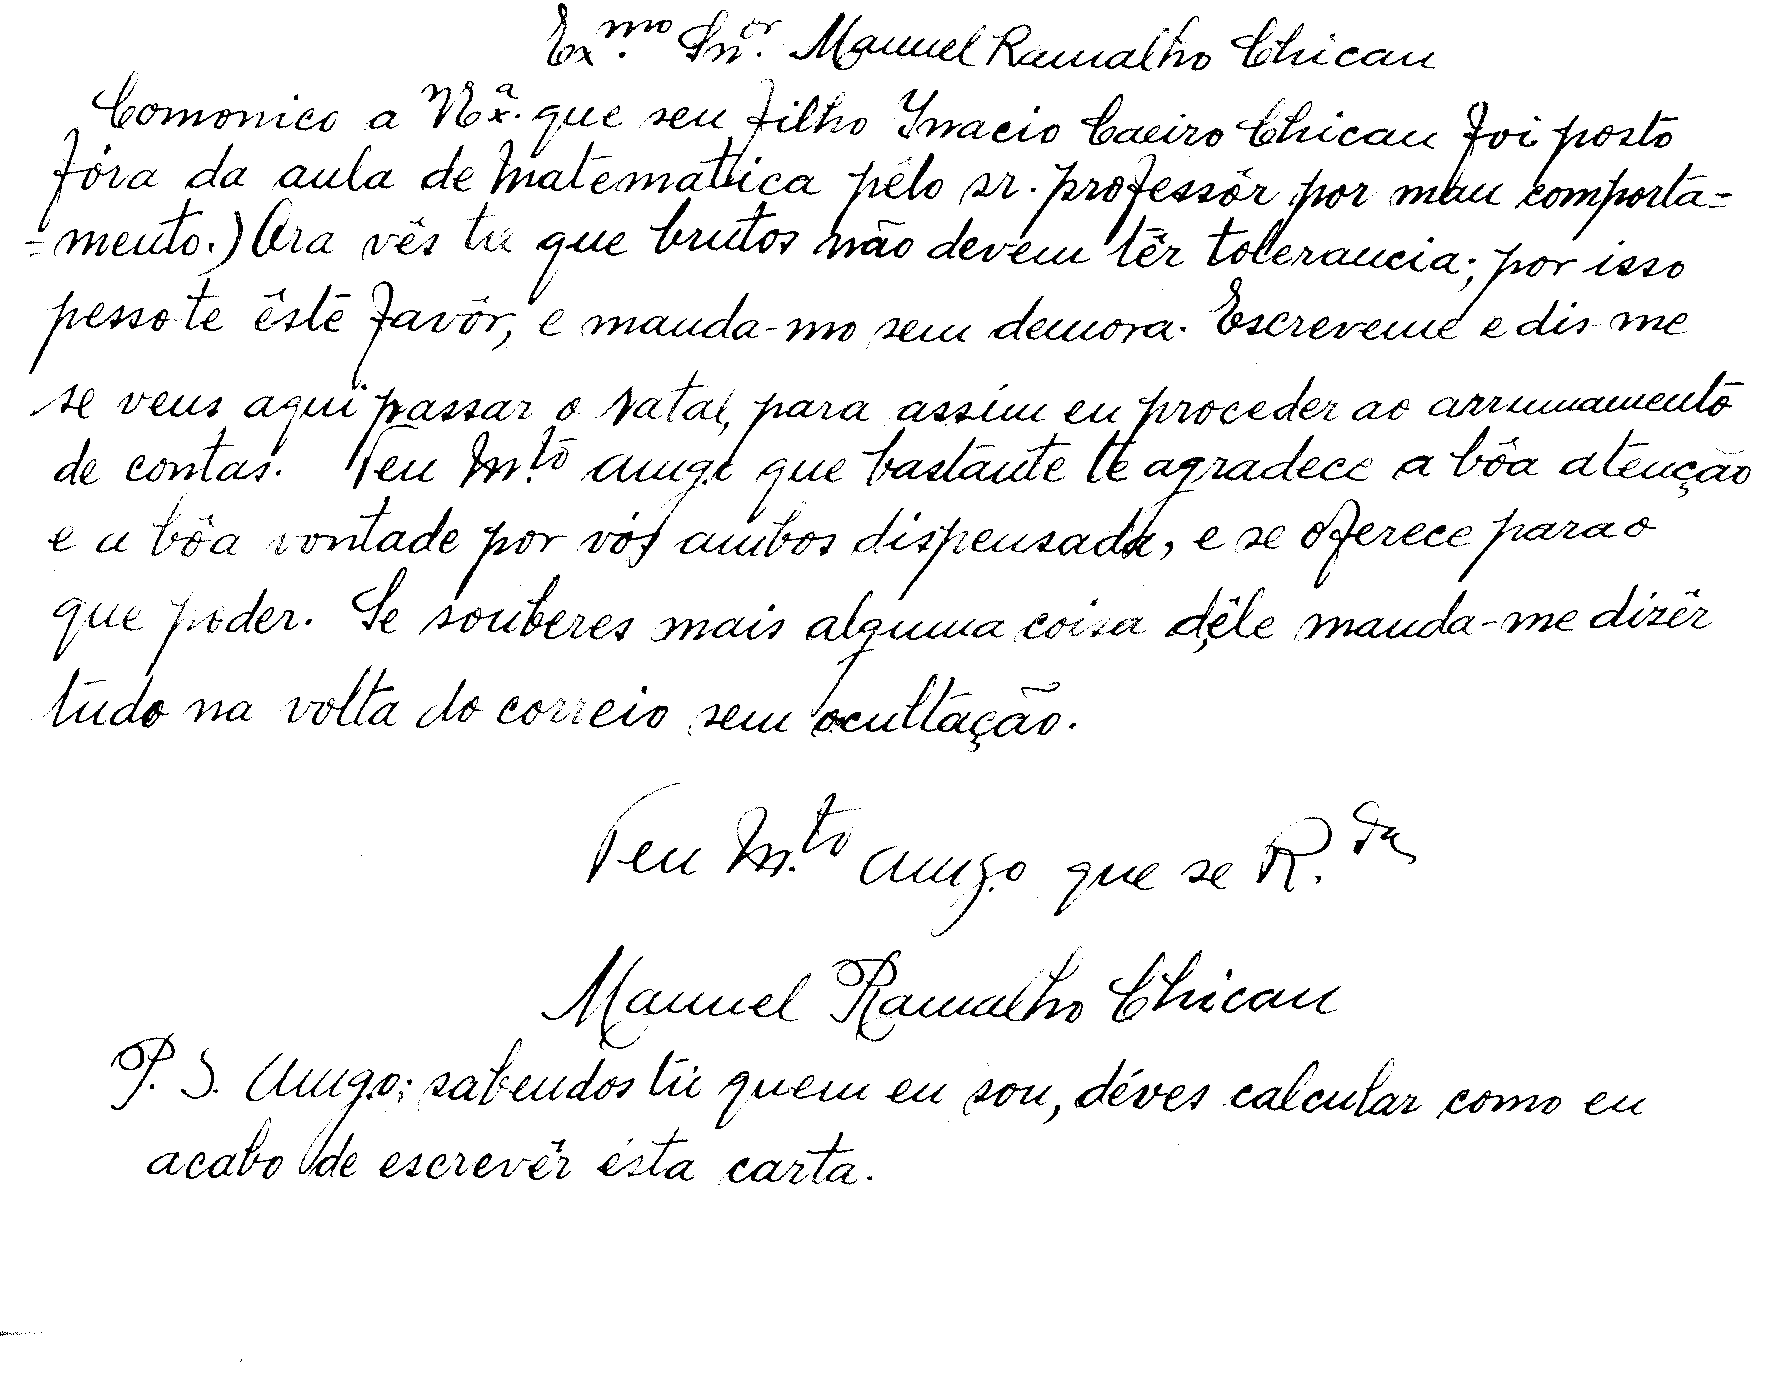 Ex.mo Snr. Manuel Ramalho Chicau
Comonico a V. Exa. que seu filho Inacio Caeiro Chicau foi posto
fóra da aula de Matematica pêlo sr. professôr por mau comporta=
=mento.) Ora vês tu que brutos não devem têr tolerancia; por isso
pesso te êste favôr, e manda-mo sem demora. Escreveme e dis-me
se vens aqui passar o Natal, para assim eu proceder ao arrumamento
de contas. Teu M.to amigo que bastante te agradece a bôa atenção
e a bôa vontade por vós ambos dispensada, e se oferece para o
que poder. Se souberes mais alguma coisa dêle manda-me dizêr
tudo na volta do correio sem ocultação.
Teu M.to amigo que se R.da
Manuel Ramalho Chicau
P. S. Amigo; sabendos tu quem eu sou, déves calcular como eu
acabo de escrevêr ésta carta.